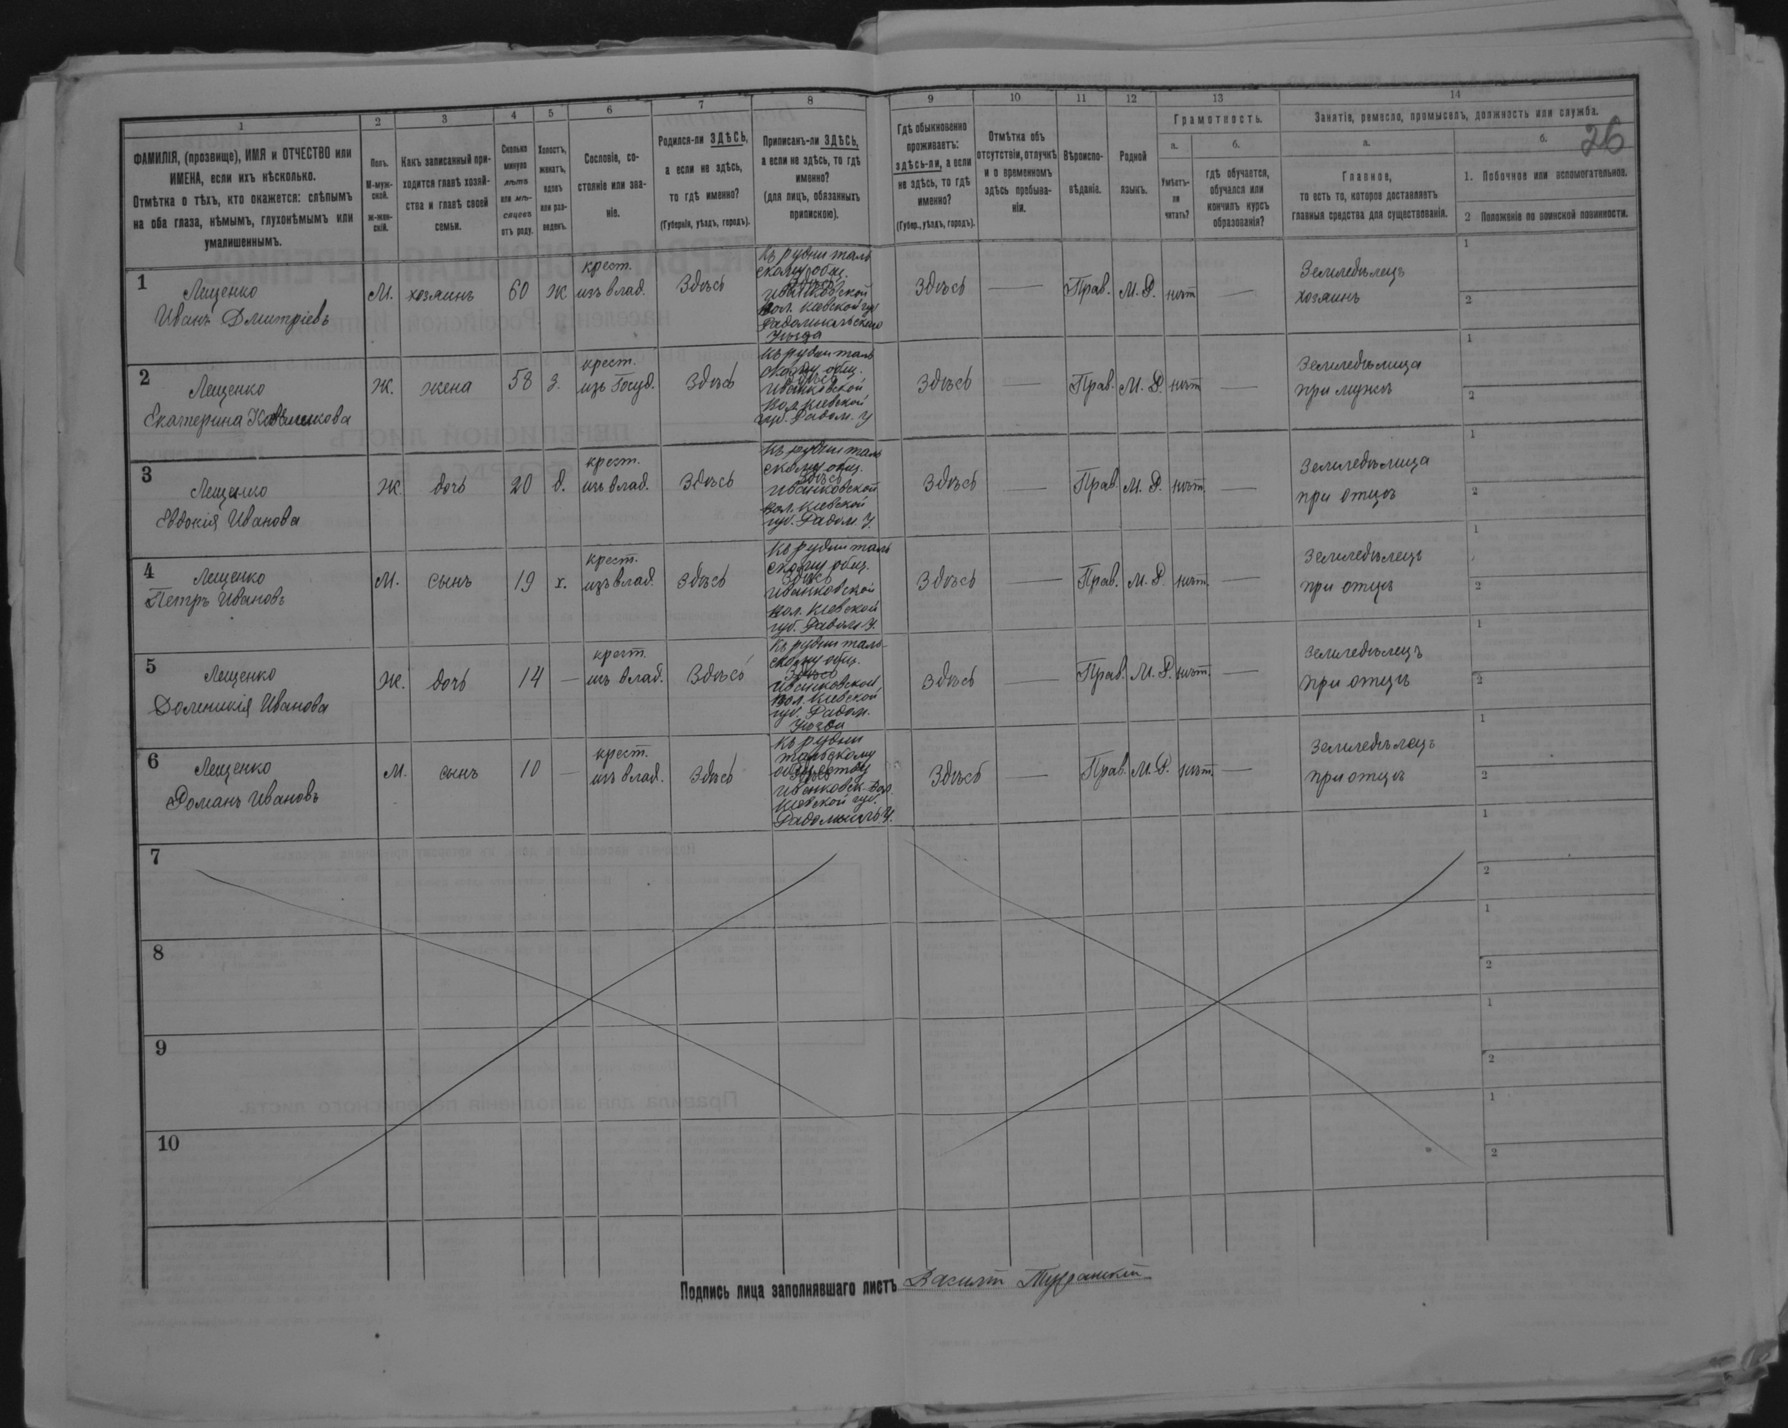 26
1 2 3 4 5 6 7 8 9 10 11 12 13 14
ФАМИЛІЯ, (прозвище), ИМЯ и ОТЧЕСТВО или
ИМЕНА, если ихъ нѣсколько.
Отмѣтка о тѣхъ, кто окажется: слѣпымъ
на оба глаза, нѣмымъ, глухонѣмымъ или
умалишеннымъ.
Полъ.
М-муж-
ской.
Ж-жен-
скій.
Какъ записанный при-
ходится главѣ хозяй-
ства и главѣ своей
семьи.
Сколько
минуло
лѣтъ
или мѣ-
сяцевъ
отъ роду.
Холостъ,
женатъ,
вдовъ
или раз-
веденъ.
Сословіе, со-
стояніе или зва-
ніе.
Родился-ли ЗДѢСЬ,
а если не здѣсь,
то гдѣ именно?
(Губернія, уѣздъ, городъ).
Приписанъ-ли ЗДѢСЬ,
а если не здѣсь, то гдѣ
именно?
(для лицъ, обязанныхъ
припискою).
Гдѣ обыкновенно
проживаетъ:
здѣсь-ли, а если
не здѣсь, то гдѣ
именно?
(Губер., уѣздъ, городъ).
Отмѣтка объ
отсутствіи, отлучкѣ
и о временномъ
здѣсь пребыва-
ніи.
Вѣроиспо-
вѣданіе.
Родной
языкъ.
Грамотность.
а.
Умѣетъ-
ли
читать?
б.
гдѣ обучается,
обучался или
кончилъ курсъ
образованія?
Занятіе, ремесло, промыселъ, должность или служба.
а.
Главное,
то есть то, которое доставляетъ
главныя средства для существованія.
б.
1. Побочное или вспомогательное.
2 Положеніе по воинской повинности.
1
Лещенко
Иванъ Дмитріевъ
М.
хозяинъ
60
ж
крест.
изъ влад.
Здѣсь
Къ рудни таль
скому общ.
Здѣсь
Иванковской
вол. Кіевской губ
Радомысльскаго
Уѣзда
Здѣсь
Прав.
М. Р.
нѣт
Земледѣлецъ
хозяинъ
1
2
2
Лещенко
Екатерина
Ж.
жена
58
з.
крест.
изъ Госуд.
Здѣсь
Къ рудни таль
скому общ.
Здѣсь
Иванковской
Вол. Кіевской
губ. Радом. У
Здѣсь
Прав.
М. Р.
нѣт
Земледѣлица
при мужѣ
1
2
3
Лещенко
Евдокія Иванова
Ж
дочь
20
д.
крест.
изъ влад.
Здѣсь
Къ рудни таль
скому общ.
Здѣсь
Иванковской
вол. Кіевской
губ. Радом У.
Здѣсь
Прав
М. Р.
нѣт
Земледѣлица
при отцѣ
1
2
4
Лещенко
Петръ Ивановъ
М.
сынъ
19
х.
крест.
изъ влад.
Здѣсь
Къ рудни таль
скому общ.
Здѣсь
Иванковской
вол. Кіевской
губ. Радом У.
Здѣсь
Прав.
М. Р.
нѣт
Земледѣлецъ
при отцѣ
1
2
5
Лещенко
Доминикія Иванова
Ж.
дочь
14
крест.
изъ влад.
Здѣсь
Къ рудни таль-
скому общ.
Здѣсь
Иванковской
вол. Кіевской
губ. Радом.
Уѣзда
Здѣсь
Прав.
М. Р.
нѣт
Земледѣлецъ
при отцѣ
1
2
6
Лещенко
Романъ Ивановъ
М.
сынъ
10
крест.
изъ влад.
Здѣсь
Къ рудни
тальскому
обществу
Здѣсь
Иванковск. вол.
Кіевской губ.
Радомысль У.
Здѣсь
Прав.
М. Р.
нѣт
Земледѣлецъ
при отцѣ
1
2
7
1
2
8
1
2
9
1
2
10
1
2
Подпись лица заполнявшаго листъ